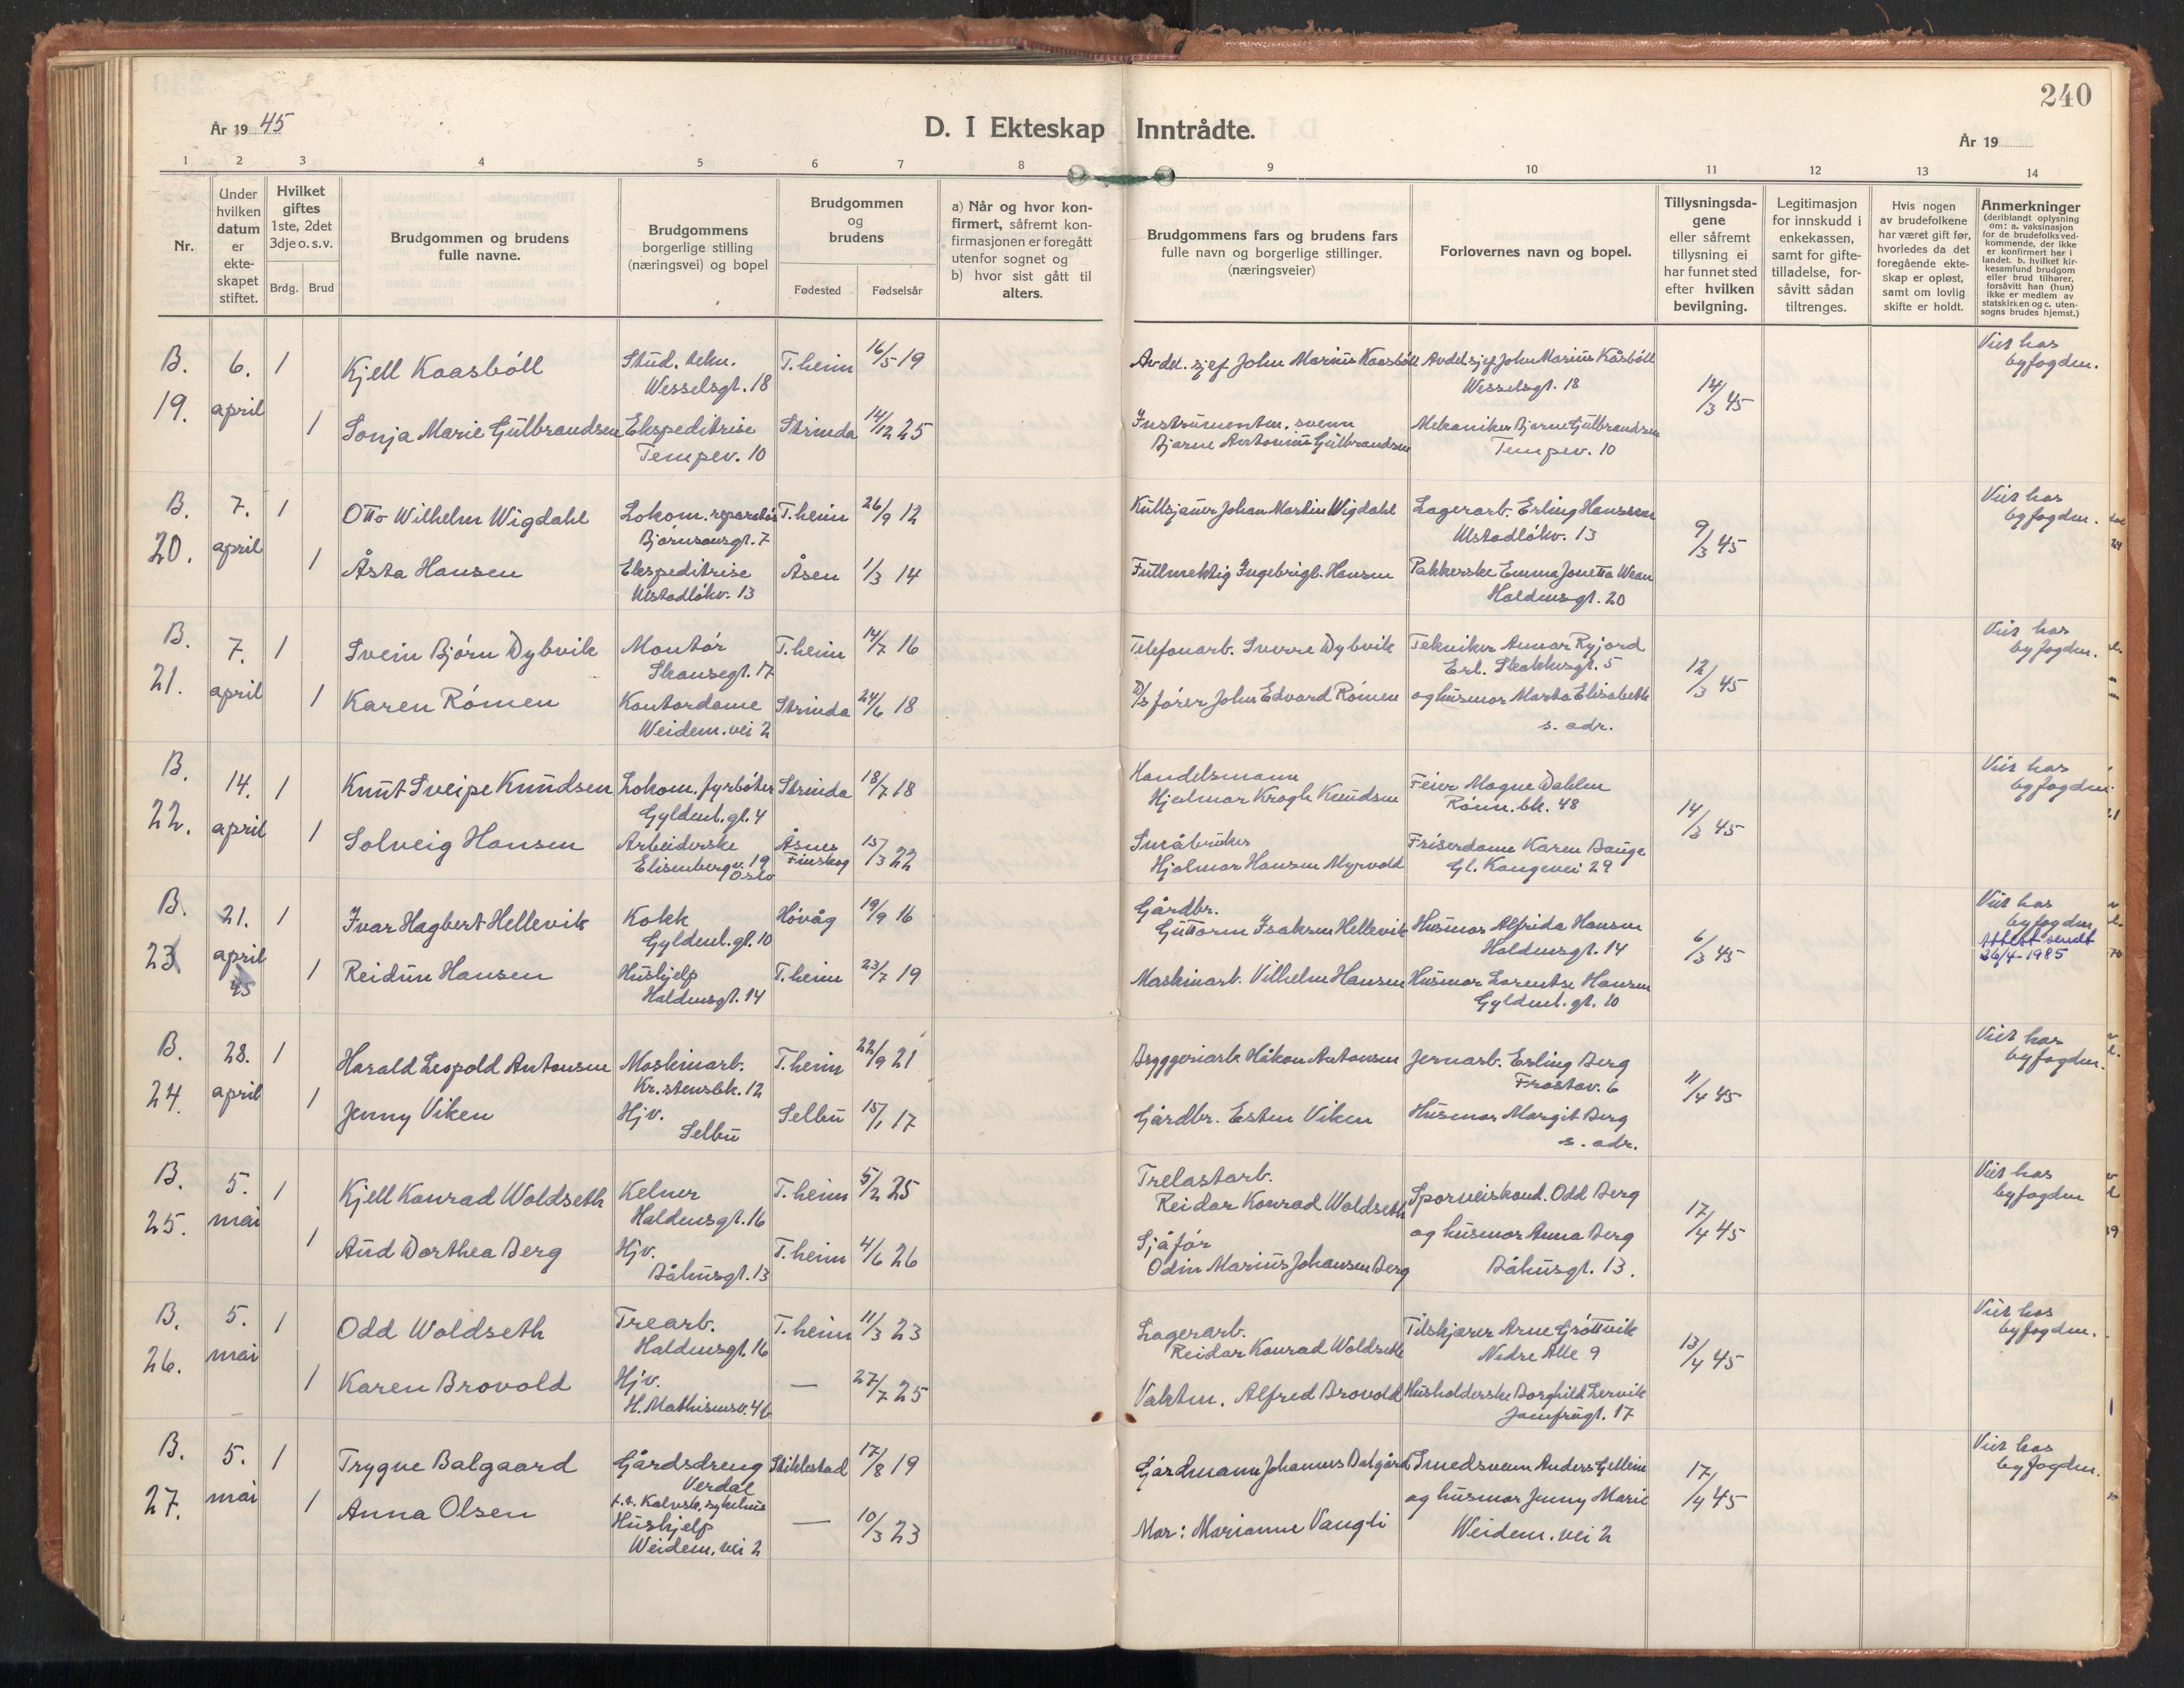 240
År 19 45
D. I Ekteskap Inntrådte.
År 19
1 2 3 4 5 6 7 8 9 10 11 12 13 14
Nr.
Under hvilken datum er ekteskapet stiftet.
Hvilket giftes 1ste, 2det 3dje o. s. v.
Brdg. Brud
Brudgommen og brudens fulle navne.
Brudgommens borgerlige stilling (næringsvei) og bopel
Brudgommen og brudens
Fødested Fødselsår
a) Når og hvor konfirmert, såfremt konfirmasjonen er foregått utenfor sognet og b) hvor sist gått til alters.
Brudgommens fars og brudens fars fulle navn og borgerlige stillinger. (næringsveier)
Forlovernes navn og bopel.
Tillysningsdagene eller såfremt tillysning ei har funnet sted efter hvilken bevilgning.
Legitimasjon for innskudd i enkekassen, samt for giftetilladelse, forsåvitt sådan tiltrenges.
Hvis nogen av brudefolkene har været gift før, hvorledes da det foregående ekteskap er opløst, samt om lovlig skifte er holdt.
Anmerkninger (deriblandt oplysning om: a. vaksinasjon for de brudefolks vedkommende, der ikke er konfirmert her i landet. b. hvilket kirkesamfund brudgom eller brud tilhører, forsåvitt han (hun) ikke er medlem av statskirken og c. utensogns brudes hjemst.)
B. 19. 6. april 1 Kjell Kaasbøll Stud. tekn. Wesselsgt. 18 T.heim 16/5 19 Avdel. sjef John Marius Kaasbøll Avdel.sjef John Marius Kåsbøll Wesselsgt. 18 14/3 45 Viet hos byfogden.
1 Sonja Marie Gulbrandsen Ekspeditrise Tempev. 10 Strinda 14/12 25 Instrumentm. svenn Bjarne Antonius Gulbrandsen Mekaniker Bjarne Gulbrandsen Tempev. 10
B. 20. 7. april 1 Otto Wilhelm Wigdahl Lokom. reparatør Bjørnsonsgt. 7 T.heim 26/9 12 Kullsjauer Johan Martin Wigdahl Lagerarb. Erling Hanssen Ulstadløkv. 13 9/3 45 Viet hos byfogden.
1 Åsta Hansen Ekspeditrise Ulstadløkv. 13 Åsen 1/3 14 Fullmektig Ingebrigt. Hansen Pakkerske Emma Jonetta Waan Haldensgt. 20
B. 21. 7. april 1 Svein Bjørn Dybvik Montør Skansegt. 17 T.heim 14/7 16 Telefonarb. Sverre Dybvik Tekniker Annar Ryjord Erl. Skakkesgt. 5 12/3 45 Viet hos byfogden.
1 Karen Rømen Kontordame Weidem. vei 2 Strinda 24/6 18 D/s fører John Edvard Rømen og husmor Marta Elisabeth s. adr.
B. 22. 14. april 1 Knut Sveipe Knudsen Lokom. fyrbøter Gyldenl. gt. 4 Strinda 18/7 18 Handelsmann Hjalmar Krogh Knudsen Feier Magne Dahlen Rønn. bk. 48 14/3 45 Viet hos byfogden
1 Solveig Hansen Arbeiderske Elisenbergv. 19 Oslo Åsnes Finskog 15/3 22 Småbruker Hjalmar Hansen Myrvold Frisørdame Karen Bauge Gl. Kongevei 29
B. 23 21. april 45 1 Ivar Hagbert Hellevik Kokk Gyldenl. gt. 10 Høvåg 19/9 16 Gårdbr. Guttorm Isaksen Hellevik Husmor Alfrida Hansen Haldensgt. 14 6/3 45 Viet hos byfogden Attest sendt 26/4-1985
1 Reidun Hansen Hushjelp Haldensgt. 14 T.heim 23/7 19 Maskinarb. Vilhelm Hansen Husmor Larentse Hansen Gyldenl. gt. 10
B. 24. 28. april 1 Harald Leopold Antonsen Maskinarb. Kr.stensbk. 12 T.heim 22/9 21 Bryggeriarb. Håkon Antonsen Jernarb. Erling Berg Frostav. 6 11/4 45 Viet hos byfogden.
1 Jenny Viken Hjv. Selbu Selbu 15/1 17 Gårdbr. Esten Viken Husmor Margit Berg s. adr.
B. 25. 5. mai 1 Kjell Konrad Woldseth Kelner Haldensgt. 16 T.heim 5/2 25 Trelastarb. Reidar Konrad Woldseth Sporveiskond. Odd Berg 17/4 45 Viet hos byfogden
1 Aud Dorthea Berg Hjv. Båhusgt. 13 T.heim 4/6 26 Sjåfør Odin Marius Johansen Berg og husmor Anna Berg Båhusgt. 13.
B. 26. 5. mai 1 Odd Woldseth Trearb. Haldensgt. 16 T.heim 11/3 23 Lagerarb. Reidar Konrad Woldseth Tilskjærer Arne Grøttvik Nedre Alle 9 13/4 45 Viet hos byfogden.
1 Karen Brovold Hjv. H. Mathisensv. 4b — 27/7 25 Vaktm. Alfred Brovold Husholderske Borghild Lervik Jomfrugt. 17
B. 27. 5. mai 1 Trygve Balgaard Gårdsdreng Verdal t.t. Kalvsk. sykehus Stiklestad 17/8 19 Gårdmann Johannes Balgård Smedsvenn Anders Gellein 17/4 45 Viet hos byfogden.
1 Anna Olsen Hushjelp Weidem. vei 2 — 10/3 23 Mor: Marianne Vangli og husmor Jenny Marie Weidem. vei 2